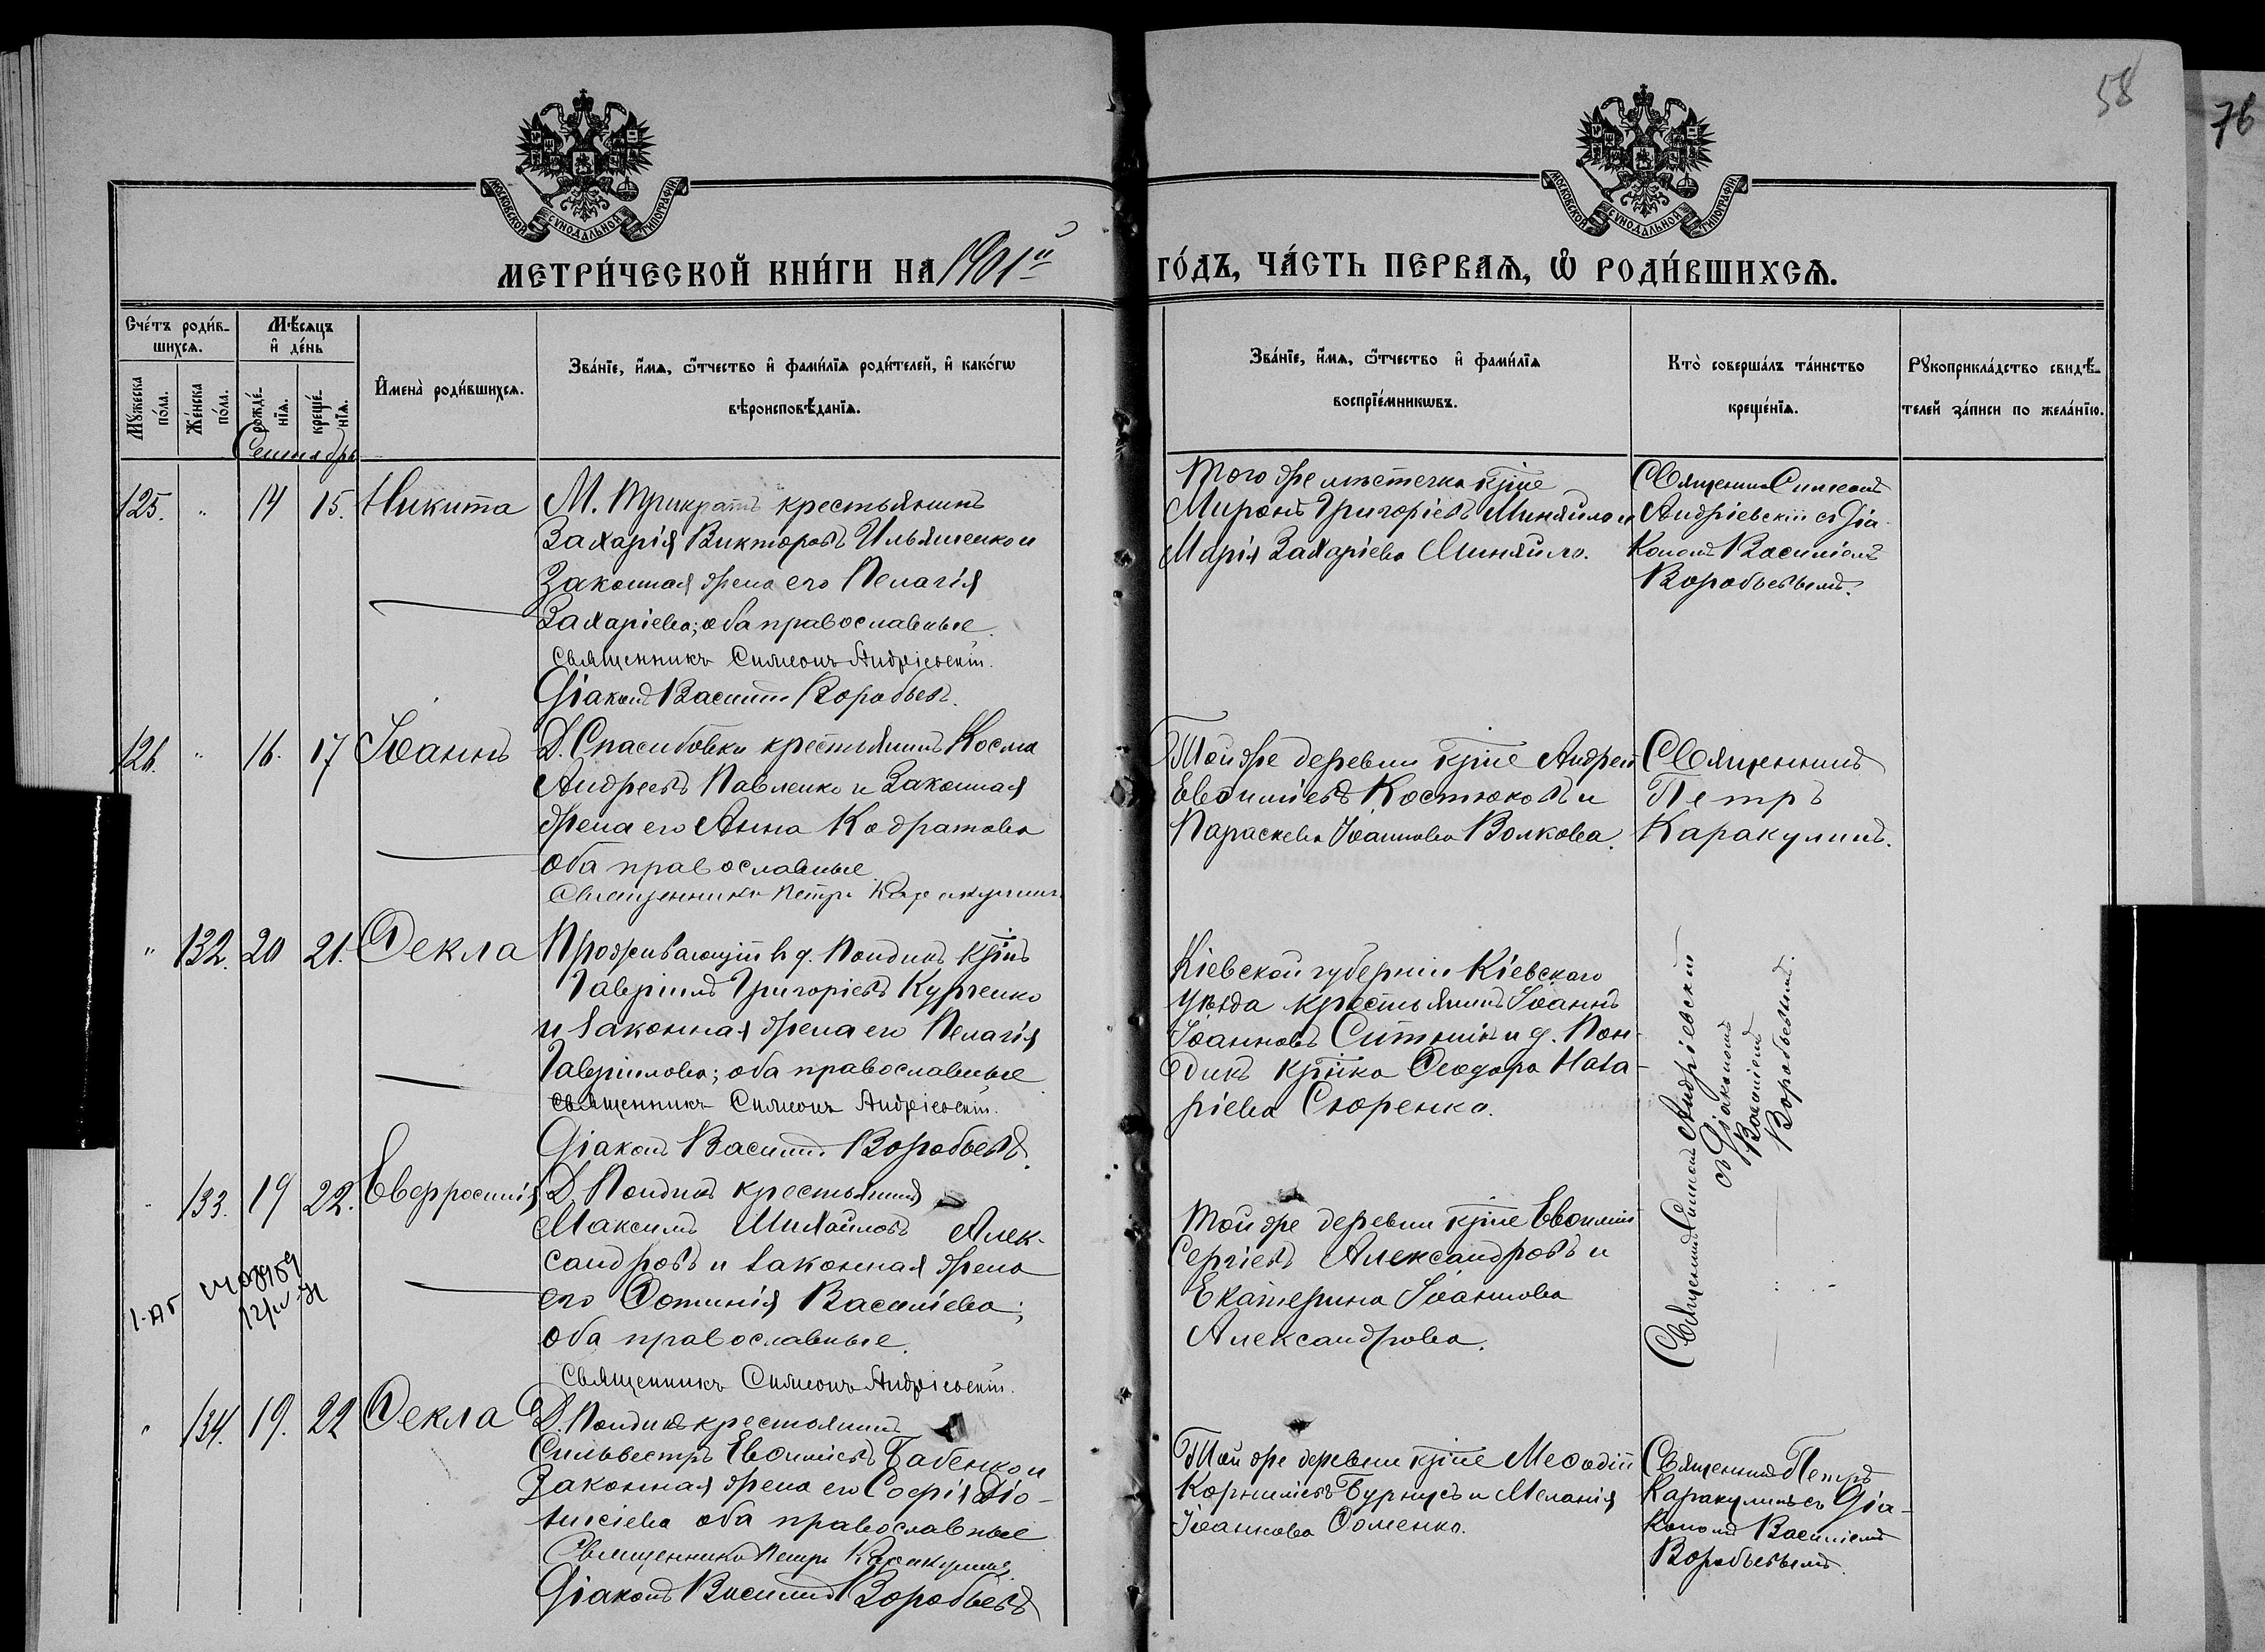 58
76
МОСКОВСКОЙ СѴНОДАЛЬНОЙ ТИПОГРАФІИ
МОСКОВСКОЙ СѴНОДАЛЬНОЙ ТИПОГРАФІИ
МЕТРИ́ЧЕСКОЙ КНИ́ГИ НА 1901й
ГО́ДЪ, ЧА́СТЬ ПЕРВАѦ, Ѽ РОДИ́ВШИХСѦ.
Сче́тъ роди́в-
шихсѧ.
Мѣ́сѧцъ
и҆ де́нь
Мꙋ́жеска
по́ла.
Же́нска
по́ла.
рожде́-
нїѧ.
креще́-
нїѧ.
И҆мена̀ роди́вшихсѧ.
Зва́нїе, и҆́мѧ, ѻ҆́тчество и҆ фами́лїѧ роди́телей, и҆ како́гѡ
вѣроисповѣ́данїѧ.
Зва́нїе, и҆́мѧ, ѻ҆́тчество и҆ фами́лїѧ
воспрїе́мникѡвъ.
Кто̀ соверша́лъ та́инство
креще́нїѧ.
Рꙋкоприкла́дство свидѣ́-
телей за́писи по жела́нїю.
Сентябрь
125. " 14 15. Никита
М. Трикратъ крестьянинъ
Захарія Викторовъ Ильяшенко и
Законная жена его Пелагія
Захаріева; оба православные.
Священникъ Симеонъ Андріевскій.
Діаконъ Василій Воробьевъ.
Того же местечка крѣне
Миронъ Григоріевъ Миняйло и
Марія Захаріева Миняйло.
Священникъ Симеонъ
Андріевскій съ Діа-
кономъ Василіемъ
Воробьевымъ.
126. " 16. 17 Іоаннъ
Д. Спасибовки крестьянинъ Косма
Андреевъ Павленко и Законная
жена его Анна Кодратова
оба православные.
Священникъ Петръ Каракулинъ.
Той же деревни крѣне Андрей
Евѳиміевъ Костюковъ и
Параскева Іоаннова Волкова.
Священникъ
Петръ
Каракулинъ.
" 132. 20 21. Ѳекла
Проживающій в д. Пондикъ крѣнъ
Гавріилъ Григоріевъ Курченко
и законная жена его Пелагія
Гавріилова; оба православные
Священникъ Симеонъ Андріевскій.
Діаконъ Василій Воробьевъ.
Кіевской губерніи Кіевскаго
уѣзда крестьянинъ Іоаннъ
Іоанновъ Ситникъ и д. Пон-
дикъ крѣнка Ѳеодора Наза-
ріева Сюренко.
Священникъ Симеонъ Андріевскій
съ Діакономъ
Василіемъ
Воробьевымъ.
" 133. 19 22. Евфросинія
Д. Пондикъ крестьянинъ
Максимъ Михайловъ Алек-
сандровъ и законная жена
его Фотинія Василіева;
оба православные.
Священникъ Симеонъ Андріевскій.
Той же деревни крѣне Евѳимій
Сергіевъ Александровъ и
Екатерина Іоаннова
Александрова.
" 134. 19. 22 Ѳекла
Д. Пондикъ крестьянинъ
Сильвестръ Евѳиміевъ Бабенко и
Законная жена его Софія Діо-
нисіева оба православные
Священникъ Петръ Каракулинъ.
Діаконъ Василій Воробьевъ
Той же деревни крѣне Меѳодій
Корниліевъ Бурнусъ и Меланія
Іоаннова Ѳоменко.
Священникъ Петръ
Каракулинъ съ Діа-
кономъ Василіемъ
Воробьевымъ.